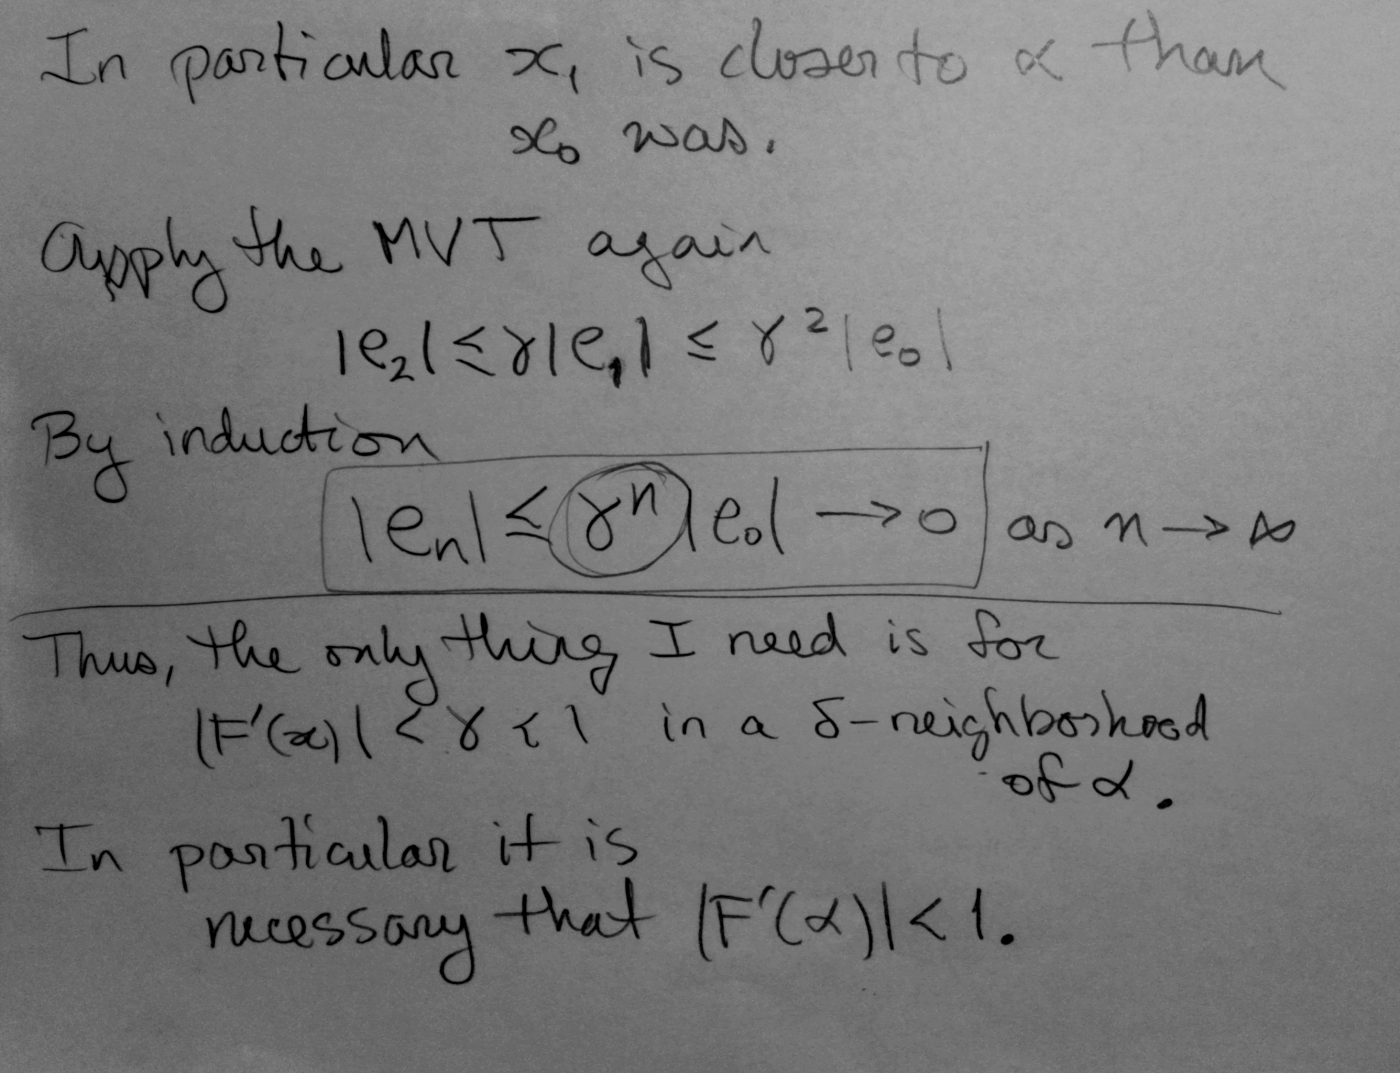 In particular x₁ is closer to α than
x₀ was.
Apply the MVT again
|e₂| ≤ γ|e₁| ≤ γ²|e₀|
By induction
|eₙ| ≤ γⁿ|e₀| → 0 as n → ∞
Thus, the only thing I need is for
|F'(x)| < γ < 1 in a δ-neighborhood
of α.
In particular it is
necessary that |F'(α)| < 1.